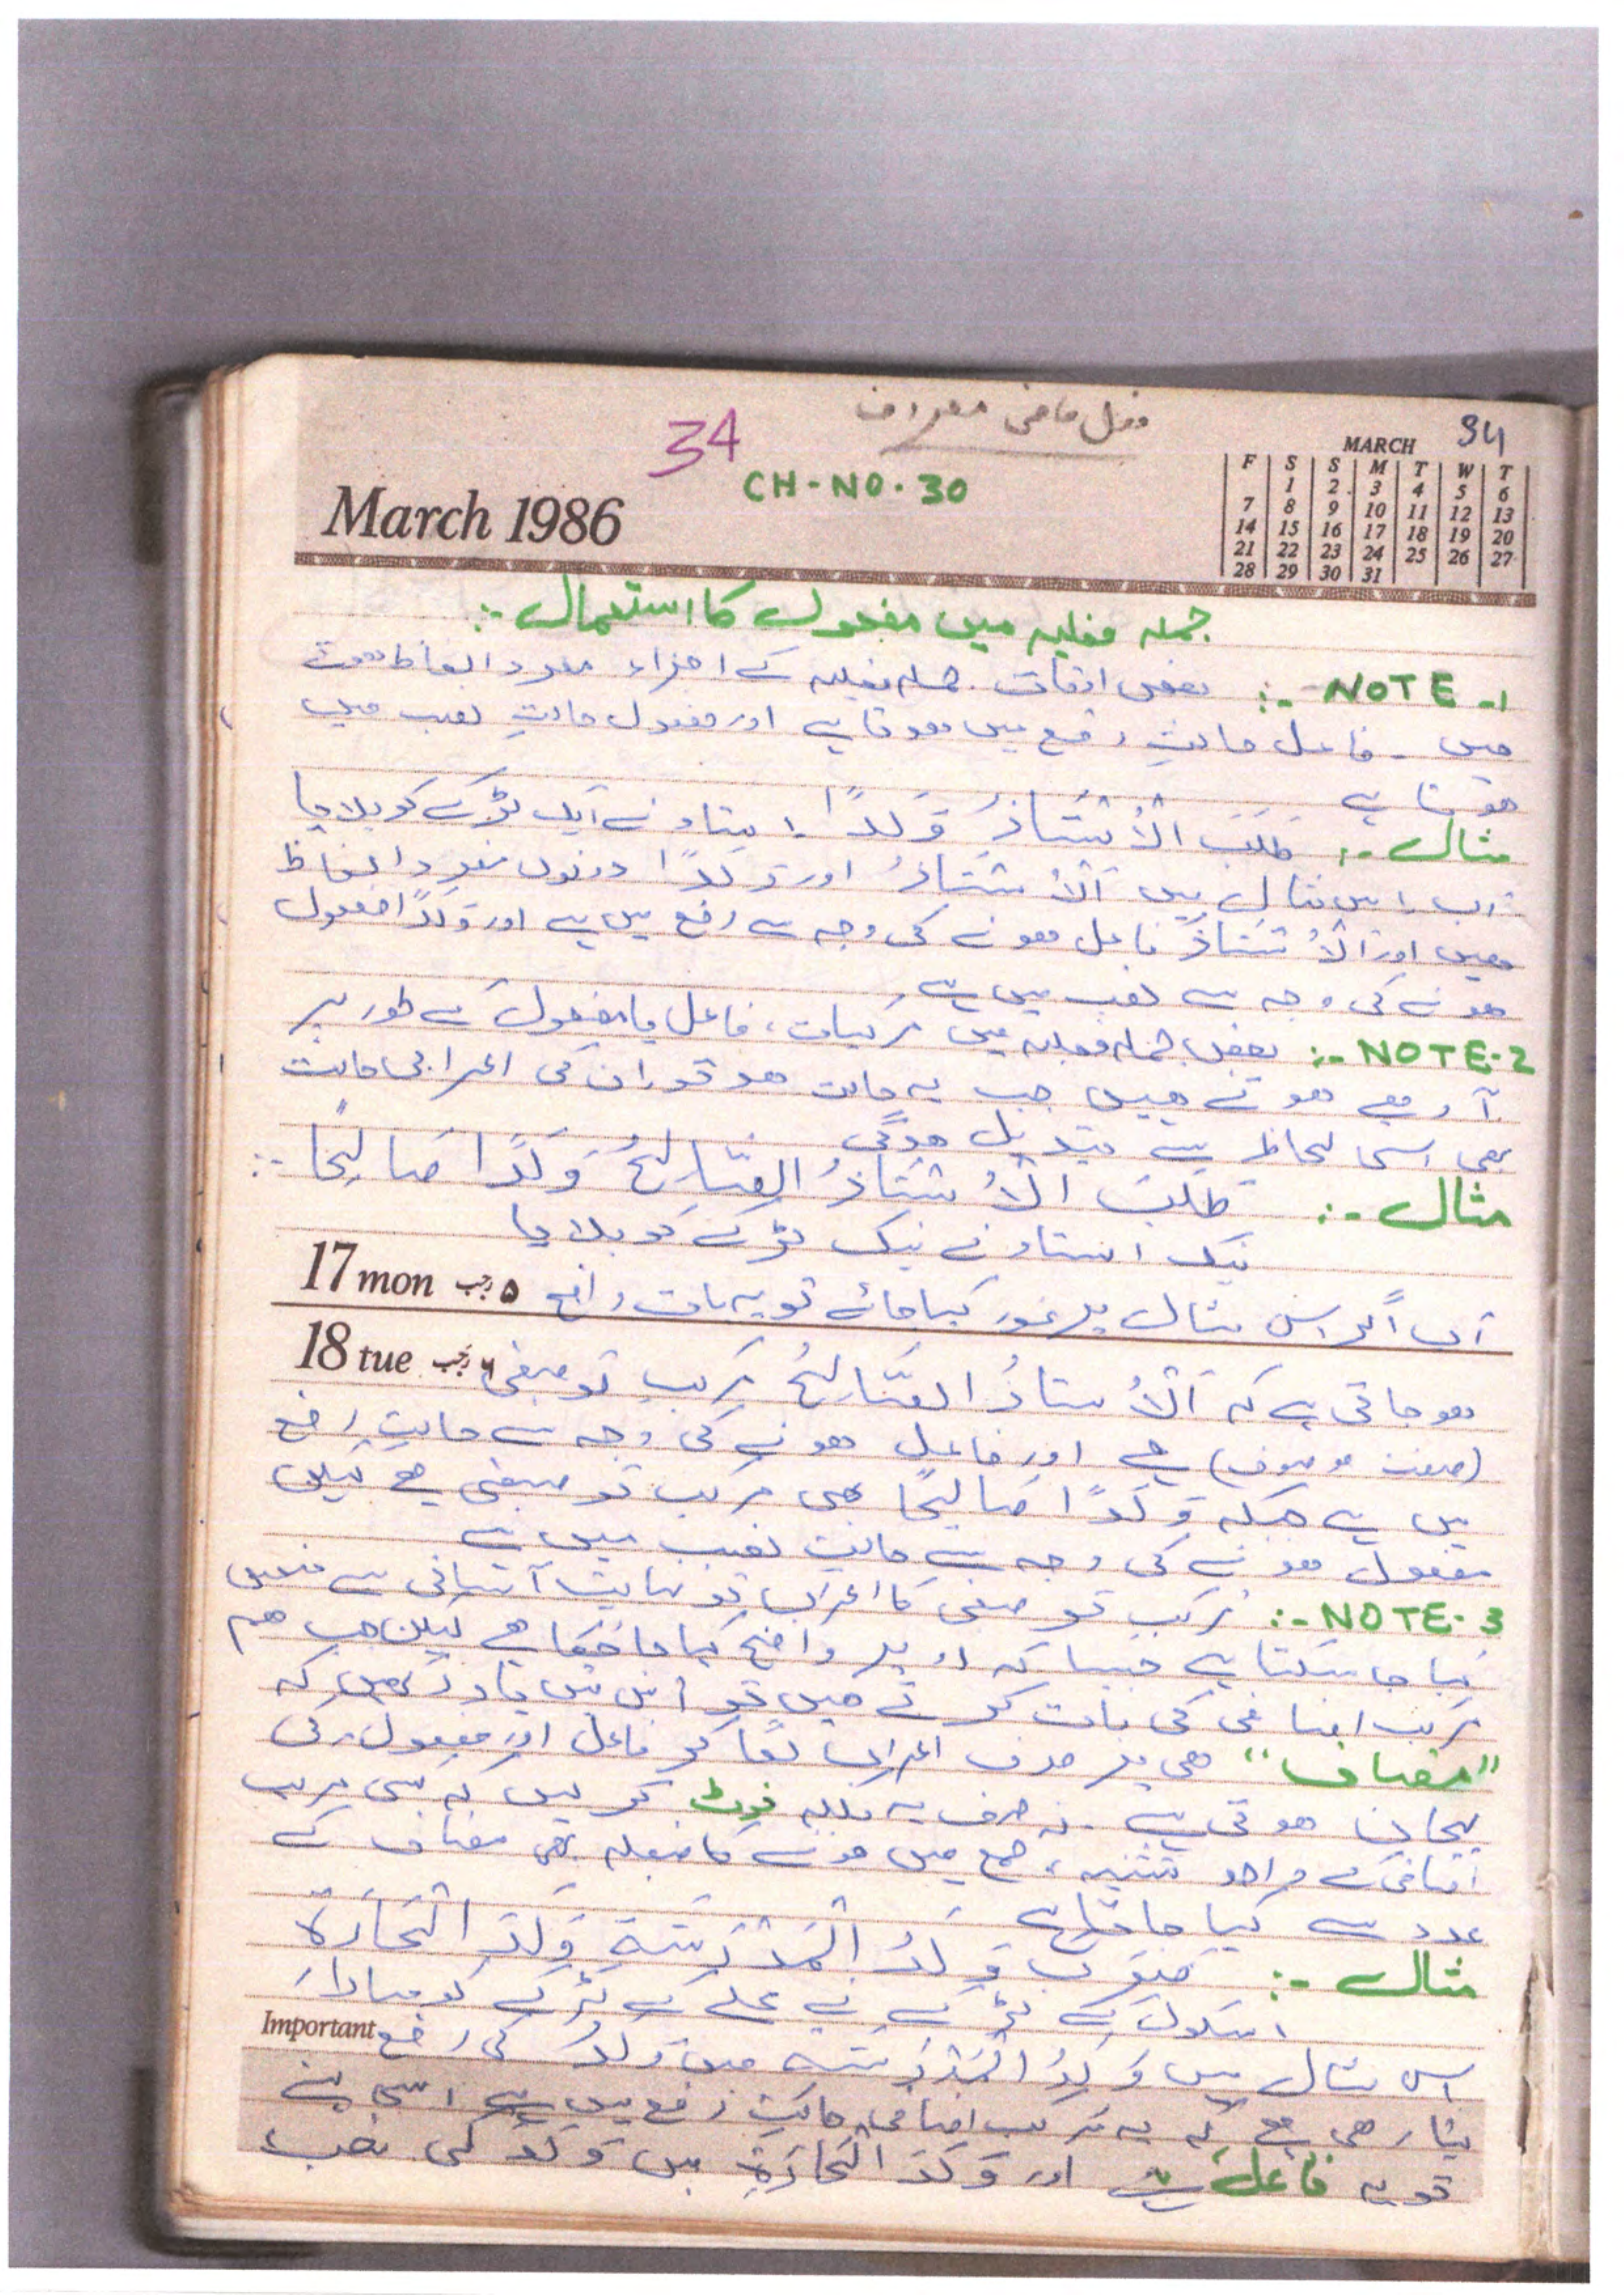 فعل ماضی معروف
34
34
CH-NO.30
March 1986
MARCH
F S S M T W T
1 2 3 4 5 6
7 8 9 10 11 12 13
14 15 16 17 18 19 20
21 22 23 24 25 26 27
28 29 30 31
جملہ فعلیہ میں مفعول کا استعمال :-
NOTE-1 :- بعض اوقات جملہ فعلیہ کے اجزاء مفرد الفاظ ہوتے
ہیں۔ فاعل حالتِ رفع میں ہوتا ہے اور مفعول حالتِ نصب میں
ہوتا ہے
مثال :- طَلَبَ الْأُسْتَاذُ وَلَدًا استاد نے ایک لڑکے کو بلایا
اب اس مثال میں اَلْأُسْتَاذُ اور وَلَدًا دونوں مفرد الفاظ
ہیں اور اَلْأُسْتَاذُ فاعل ہونے کی وجہ سے رفع میں ہے اور وَلَدًا مفعول
ہونے کی وجہ سے نصب میں ہے
NOTE-2 :- بعض جملہ فعلیہ میں مرکبات، فاعل یا مفعول کے طور پر
آ رہے ہوتے ہیں جب یہ حالت ہو تو ان کی اعرابی حالت
بھی اسی لحاظ سے تبدیل ہوگی
مثال :- طَلَبَ الْأُسْتَاذُ الصَّالِحُ وَلَدًا صَالِحًا :-
نیک استاد نے نیک لڑکے کو بلایا
17 mon ۵ رجب
اب اگر اس مثال پر غور کیا جائے تو یہ بات واضح
18 tue ۶ رجب
ہو جاتی ہے کہ اَلْأُسْتَاذُ الصَّالِحُ مرکب توصیفی
(صفت موصوف) ہے اور فاعل ہونے کی وجہ سے حالتِ رفع
میں ہے جبکہ وَلَدًا صَالِحًا بھی مرکب توصیفی ہے لیکن
مفعول ہونے کی وجہ سے حالتِ نصب میں ہے
NOTE-3 :- مرکب توصیفی کا اعراب تو نہایت آسانی سے متعین
کیا جا سکتا ہے جیسا کہ اوپر واضح کیا جا چکا ہے لیکن جب ہم
مرکب اضافی کی بات کرتے ہیں تو اس میں یاد رکھیں کہ
"مضاف" ہی پر صرف اعراب لگا کر فاعل اور مفعول کی
پہچان ہوتی ہے۔ نہ صرف یہ بلکہ نوٹ کر لیں کہ کسی مرکب
اضافی کے واحد تثنیہ، جمع میں ہونے کا فیصلہ بھی مضاف کے
عدد سے کیا جاتا ہے
مثال :- ضَرَبَ وَلَدُ الْمَدْرَسَةِ وَلَدَ الْحَارَةِ
اسکول کے لڑکے نے محلے کے لڑکے کو مارا
Important
اس مثال میں وَلَدُ الْمَدْرَسَةِ میں وَلَدُ کی رفع
بتا رہی ہے کہ یہ مرکب اضافی حالتِ رفع میں ہے اسی لیے
تو یہ فاعل ہے اور وَلَدَ الْحَارَةِ میں وَلَدَ کی نصب